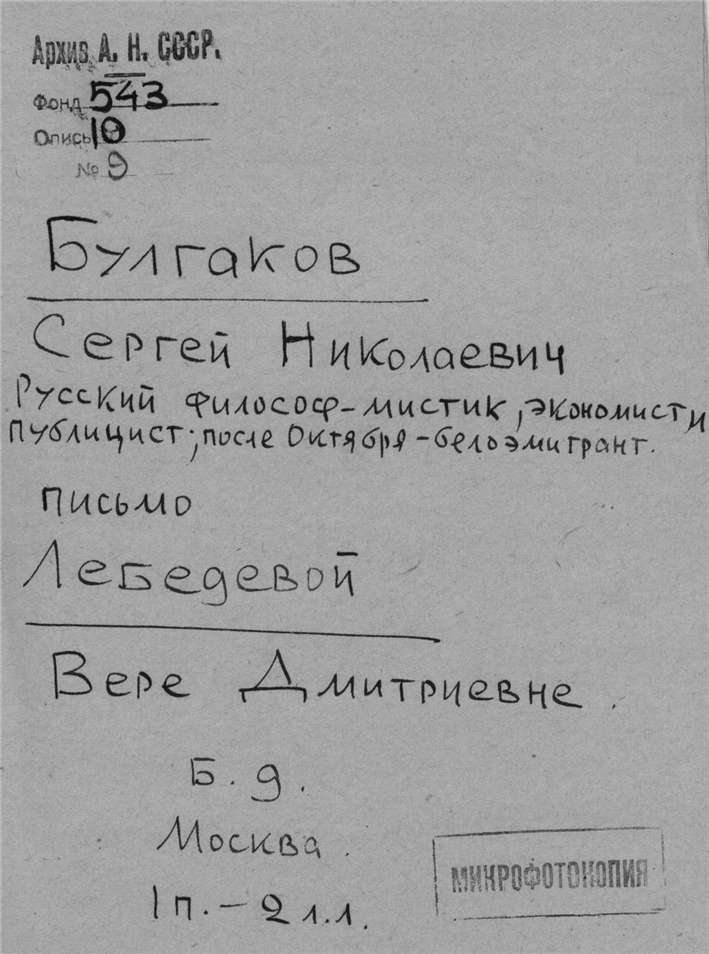 Архив А. Н. СССР.
Фонд 543
Опись 10
№ 9
Булгаков
Сергей Николаевич
Русский философ-мистик, экономист и
публицист; после Октября - белоэмигрант.
письмо
Лебедевой
Вере Дмитриевне.
Б. д.
Москва.
1 п. - 2 л.л.
МИКРОФОТОКОПИЯ